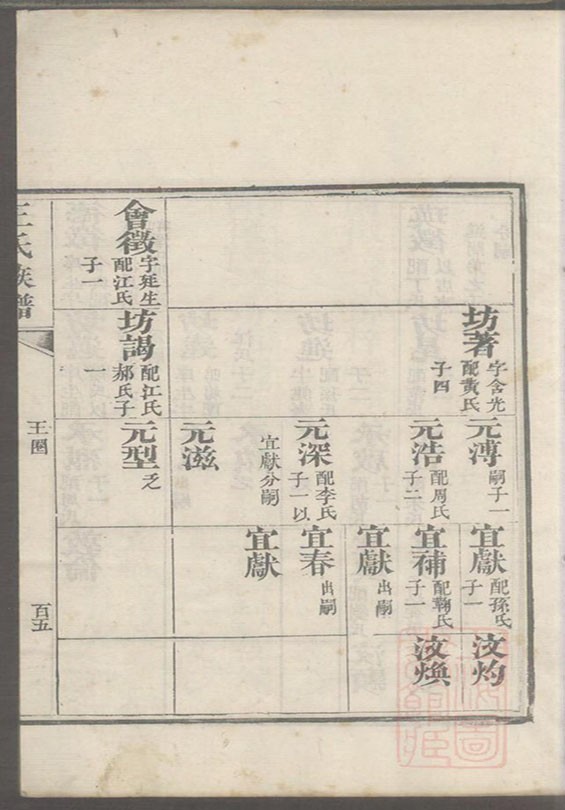 坊著 字含光 配黃氏 子四
元溥 嗣子一
元浩 配周氏 子二
元深 配李氏 子一以 宜獻分嗣
元滋
宜獻 配孫氏 子一
宜補 配鞠氏 子一
宜獻 出嗣
宜春 出嗣
宜獻
汶灼
汶煥
會徵 字廷生 配江氏 子一
坊謁 配江氏 郝氏子 一
元型 乏
王氏族譜
王圈
百五